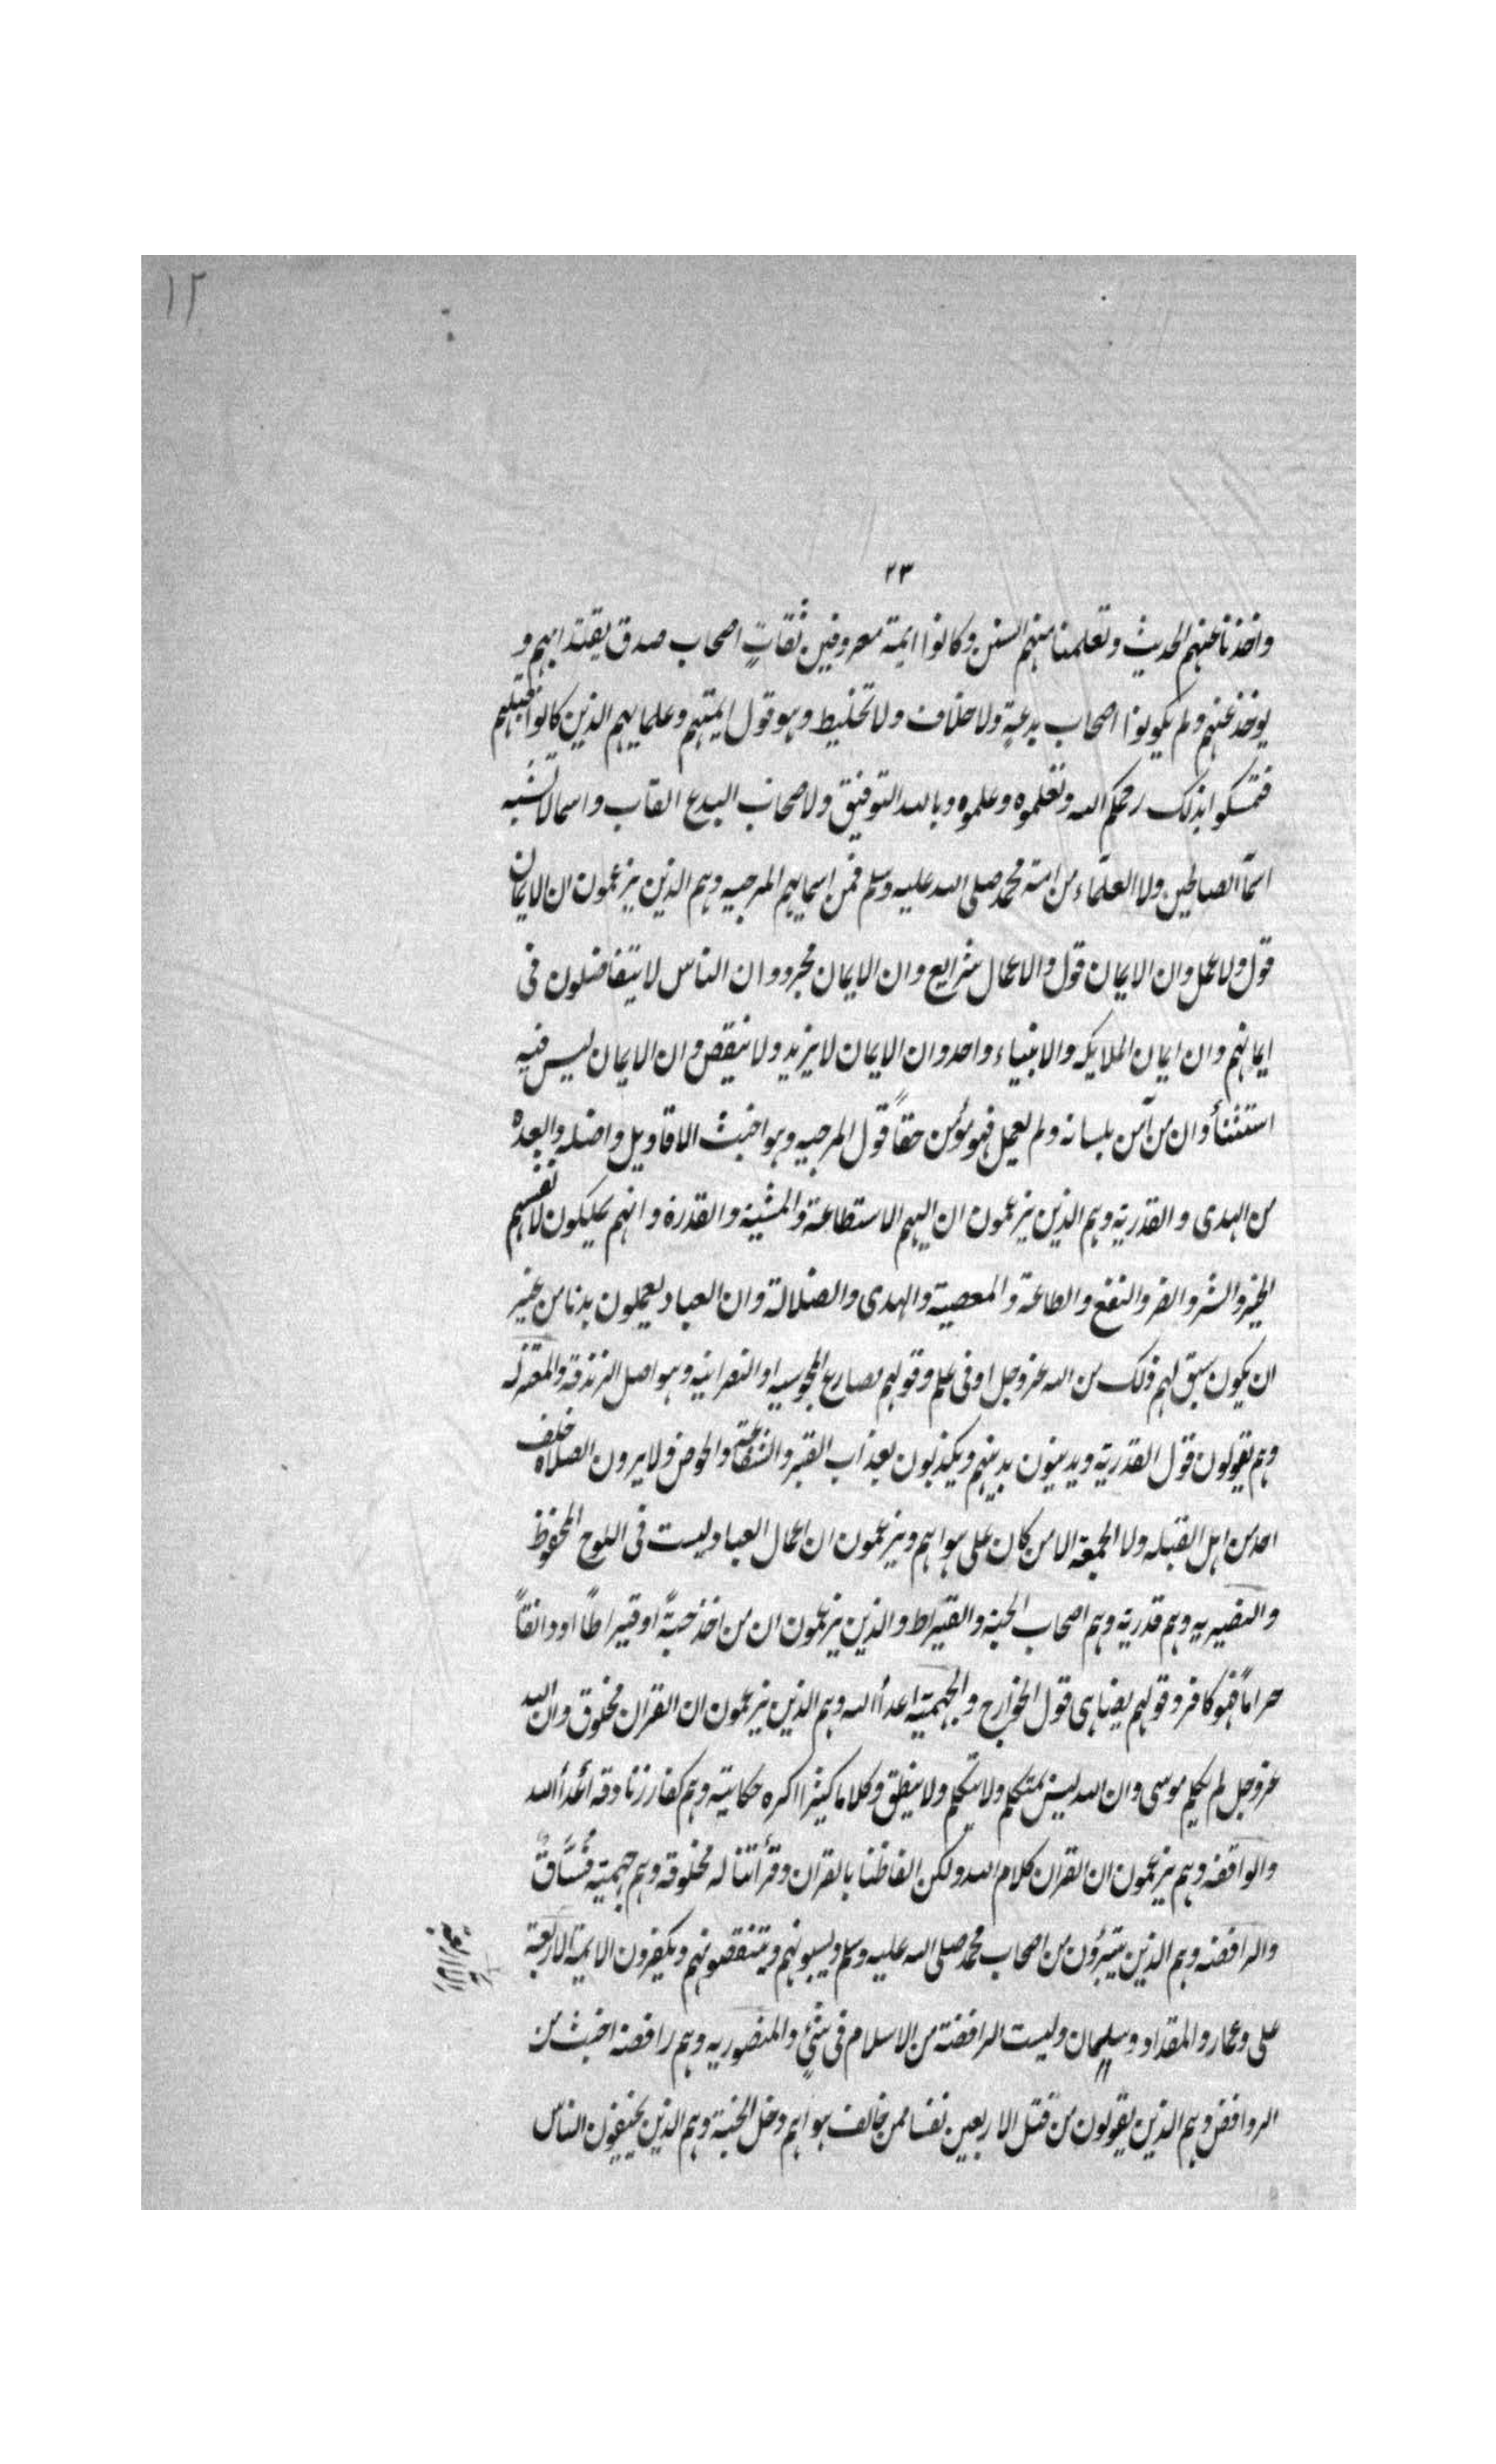 ١٢
٢٣
واخذنا عنهم الحديث وتعلمنا منهم السنن وكانوا ايمة معروفين ثقات اصحاب صدق يقتدا بهم و
يوخذ عنهم ولم يكونوا اصحاب بدعة ولا خلاف ولا تخليط وهو قول ايمتهم وعلمايهم الذين كانوا قبلهم
فتمسكوا بذلك رحمكم الله وتعلموه وعلموه وبالله التوفيق ولاصحاب البدع القاب واسما لا تشبه
اسمآ الصالحين ولا العلماء من امة محمد صلى الله عليه وسلم فمن اسمايهم المرجيه وهم الذين يزعمون ان الايمان
قول ولا عمل وان الايمان قول والاعمال شرايع وان الايمان مجرد وان الناس لا يتفاضلون فى
ايمانهم وان ايمان الملايكه والانبياء واحد وان الايمان لا يزيد ولا ينقص وان الايمان ليس فيه
استثنأ وان من آمن بلسانه ولم يعمل فهو مؤمن حقاً قول المرجيه وهو اخبث الاقاويل واضله وابعده
من الهدى والقدرية وهم الذين يزعمون ان اليهم الاستطاعة والمشية والقدرة وانهم يملكون لانفسهم
الخير والشر والضر والنفع والطاعة والمعصية والهدى والضلالة وان العباد يعملون بدنا من غير
ان يكون سبق لهم ذلك من الله عزوجل او فى علم وقولهم مضارع المجوسيه والنصرانيه وهو اصل الزندقة والمعتزله
وهم يقولون قول القدرية ويدينون بدينهم ويكذبون بعذاب القبر والشفاعة والحوض ولا يرون الصلاة خلف
احد من اهل القبله ولا الجمعة الا من كان على هواهم ويزعمون ان اعمال العباد ليست فى اللوح المحفوظ
والنصيريه وهم قدرية وهم اصحاب الحبة والقيراط والذين يزعمون ان من اخذ حبةً او قيراطاً او دانقاً
حراماً فهو كافر وقولهم يضاهى قول الخوارج والجهمية اعداا الله وهم الذين يزعمون ان القران مخلوق وان الله
عزوجل لم يكلم موسى وان الله ليس بمتكلم ولا يتكلم ولا ينطق وكلاما كثيرا اكره حكايته وهم كفار زنادقه اعداأ الله
والواقفه وهم يزعمون ان القران كلام الله ولكن الفاظنا بالقران وقرأتنا له مخلوقة وهم جهمية فُسَّاقٌ
والرافضه وهم الذين يتبرؤن من اصحاب محمد صلى الله عليه وسلم ويسبونهم وينتقصونهم ويكفرون الايمة الاربعة
على وعمار والمقداد وسليمان وليست الرافضة من الاسلام فى شئ والمنصوريه وهم رافضة اخبث من
الروافض وهم الذين يقولون من قتل الاربعين نفسا ممن خالف هواهم دخل الجنة وهم الذين يخيفون الناس